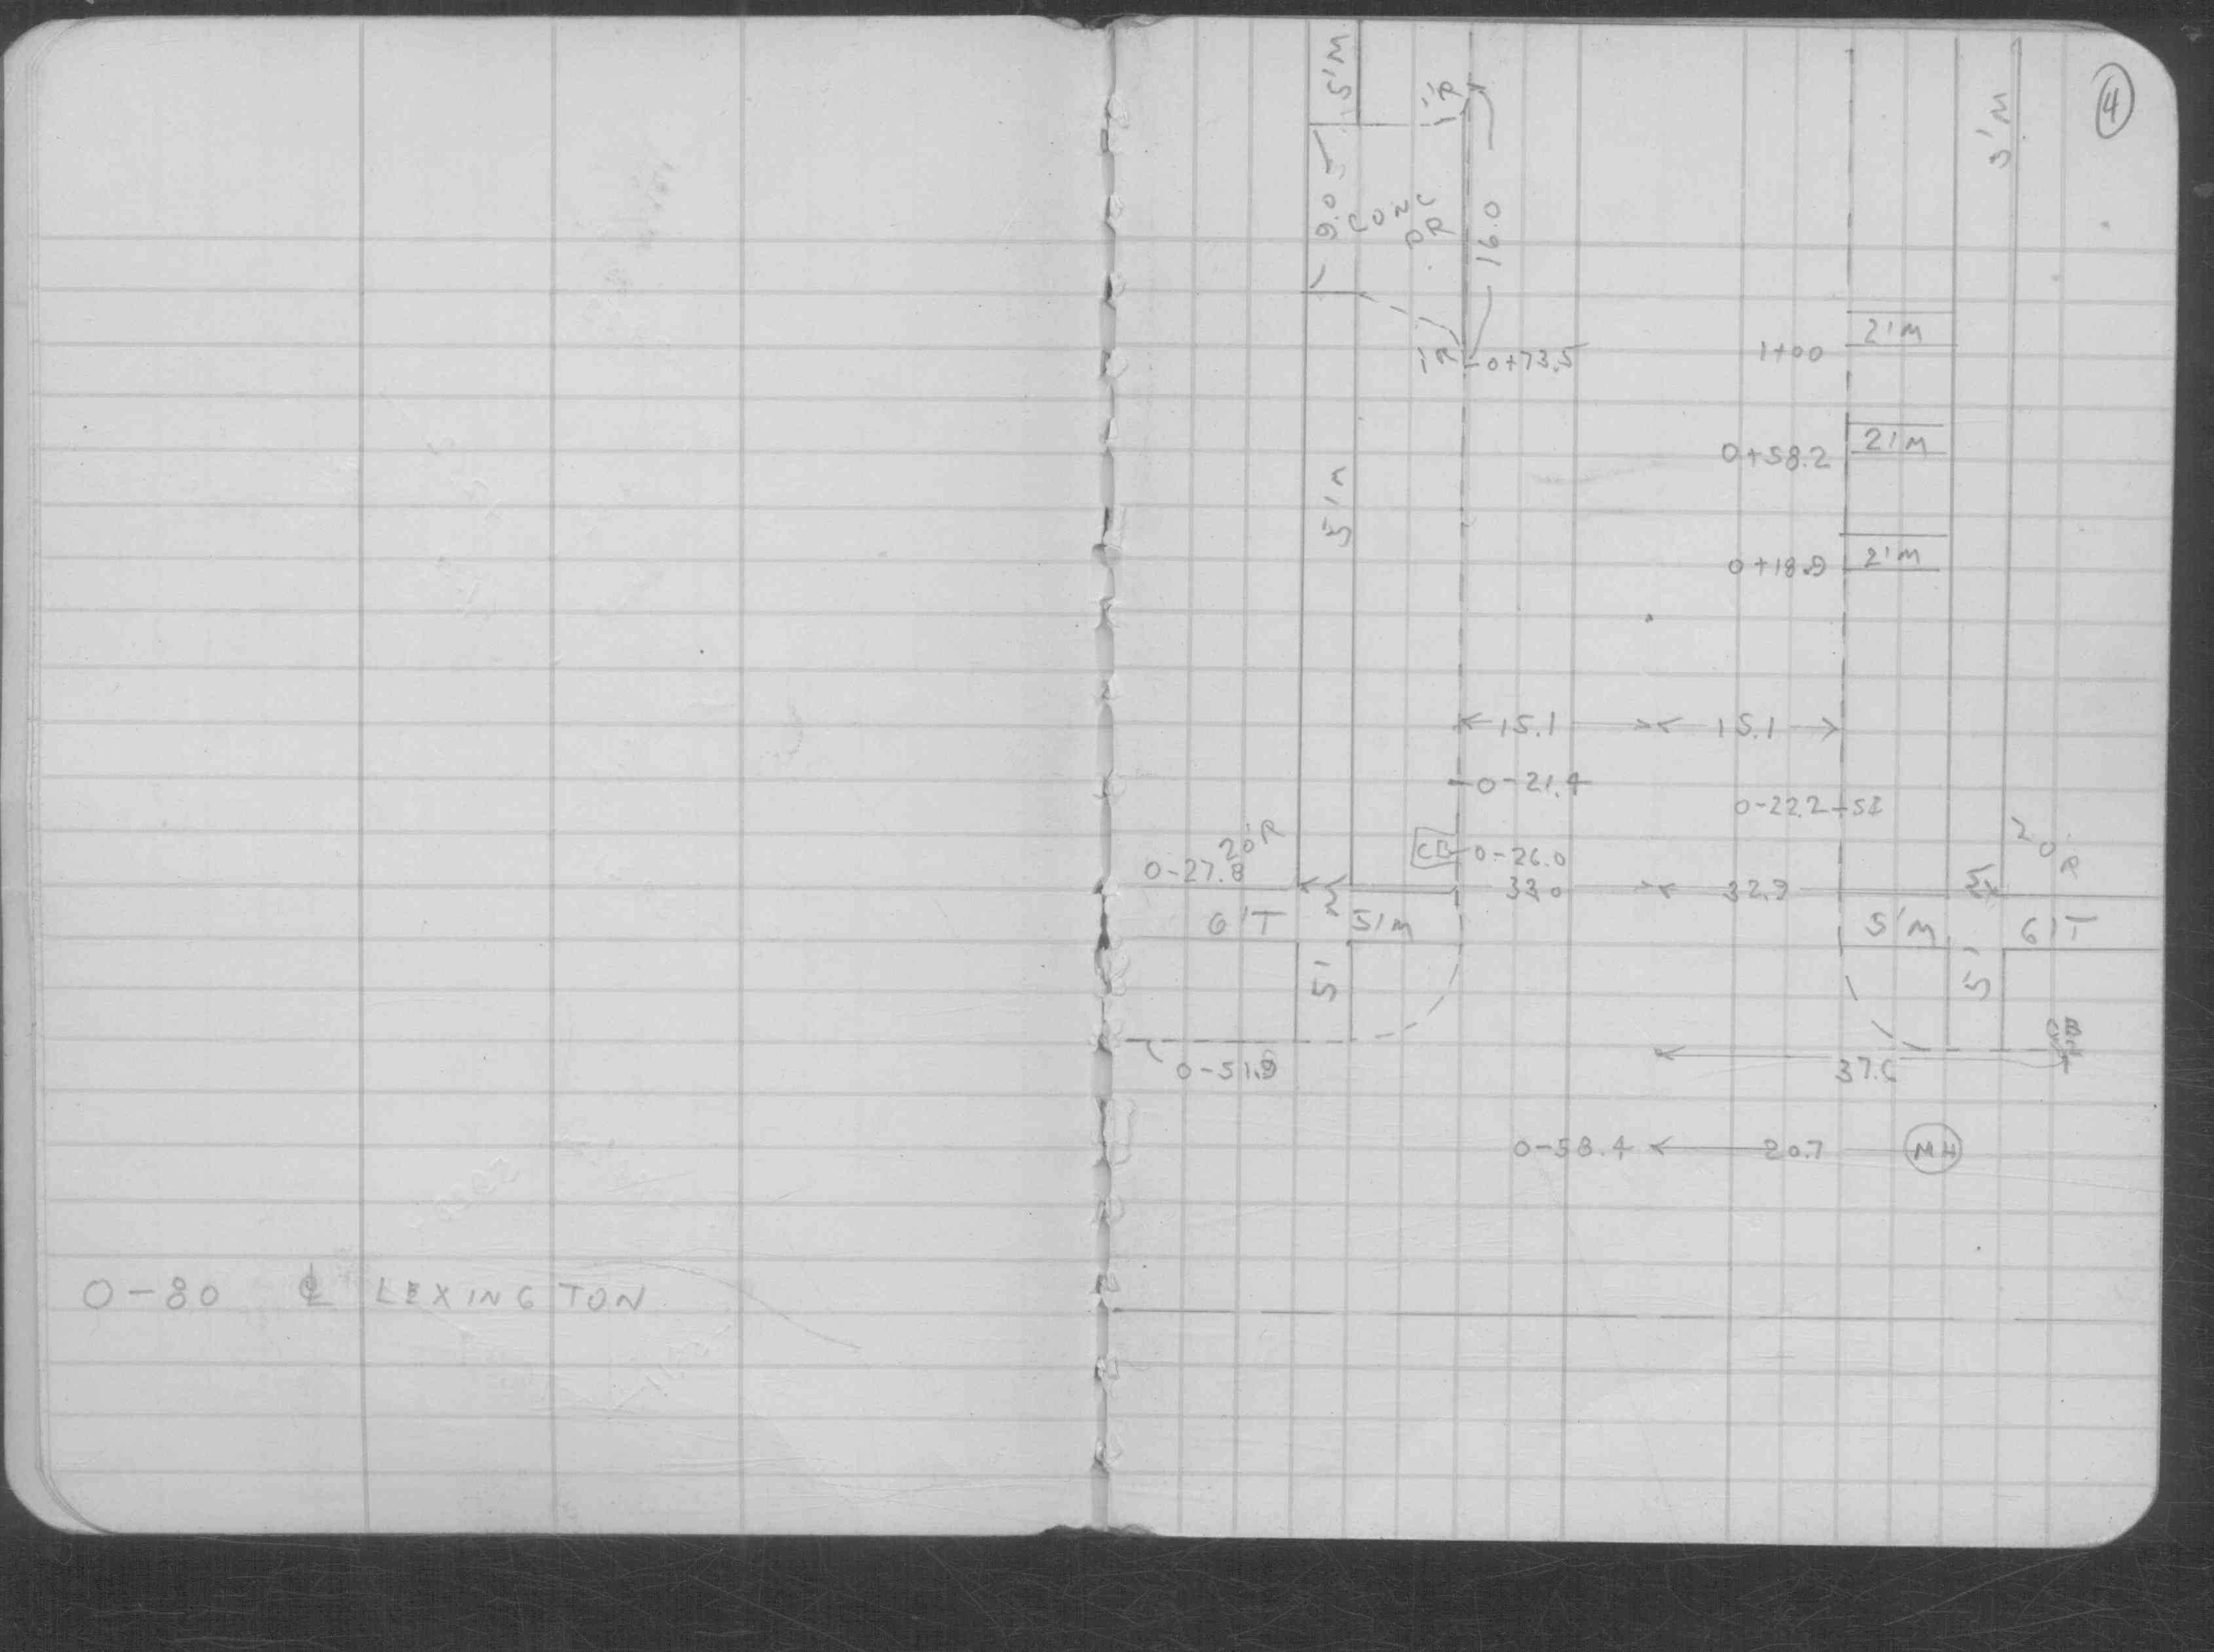 4
5'M
1'R
5'M
9.0
CONC
DR
16.0
2'M
1+00
1R
0+73.5
2'M
0+58.2
5'M
2'M
0+18.9
15.1
15.1
0-21.4
0-22.2
20'R
CB
0-26.0
20R
0-27.8
33.0
32.9
6'T
5'M
5'M
6'T
5'
5'
CB
0-51.9
37.6
0-58.4
20.7
MH
0-80 ℄ LEXINGTON